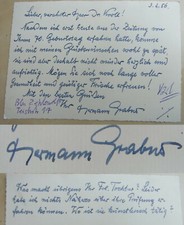 3.6.56
Lieber, verehrter Herr Dr. Kroll!
Nachdem ich erst heute aus der Zeitung von
Ihrem 70. Geburtstag erfahren habe, komme
ich mit meinen Glückwünschen wohl zu spät
sie sind aber deshalb nicht minder herzlich und
aufrichtig. Mögen Sie sich noch lange voller
Gesundheit und geistiger Frische erfreuen!
Mit den besten Grüßen
Ihr
Hermann Grabner
Hermann Grabner
Was macht übrigens Ihr Frl. Tochter? Leider
habe ich nichts Näheres über ihre Prüfung er-
fahren können. Wo ist sie künstlerisch tätig?